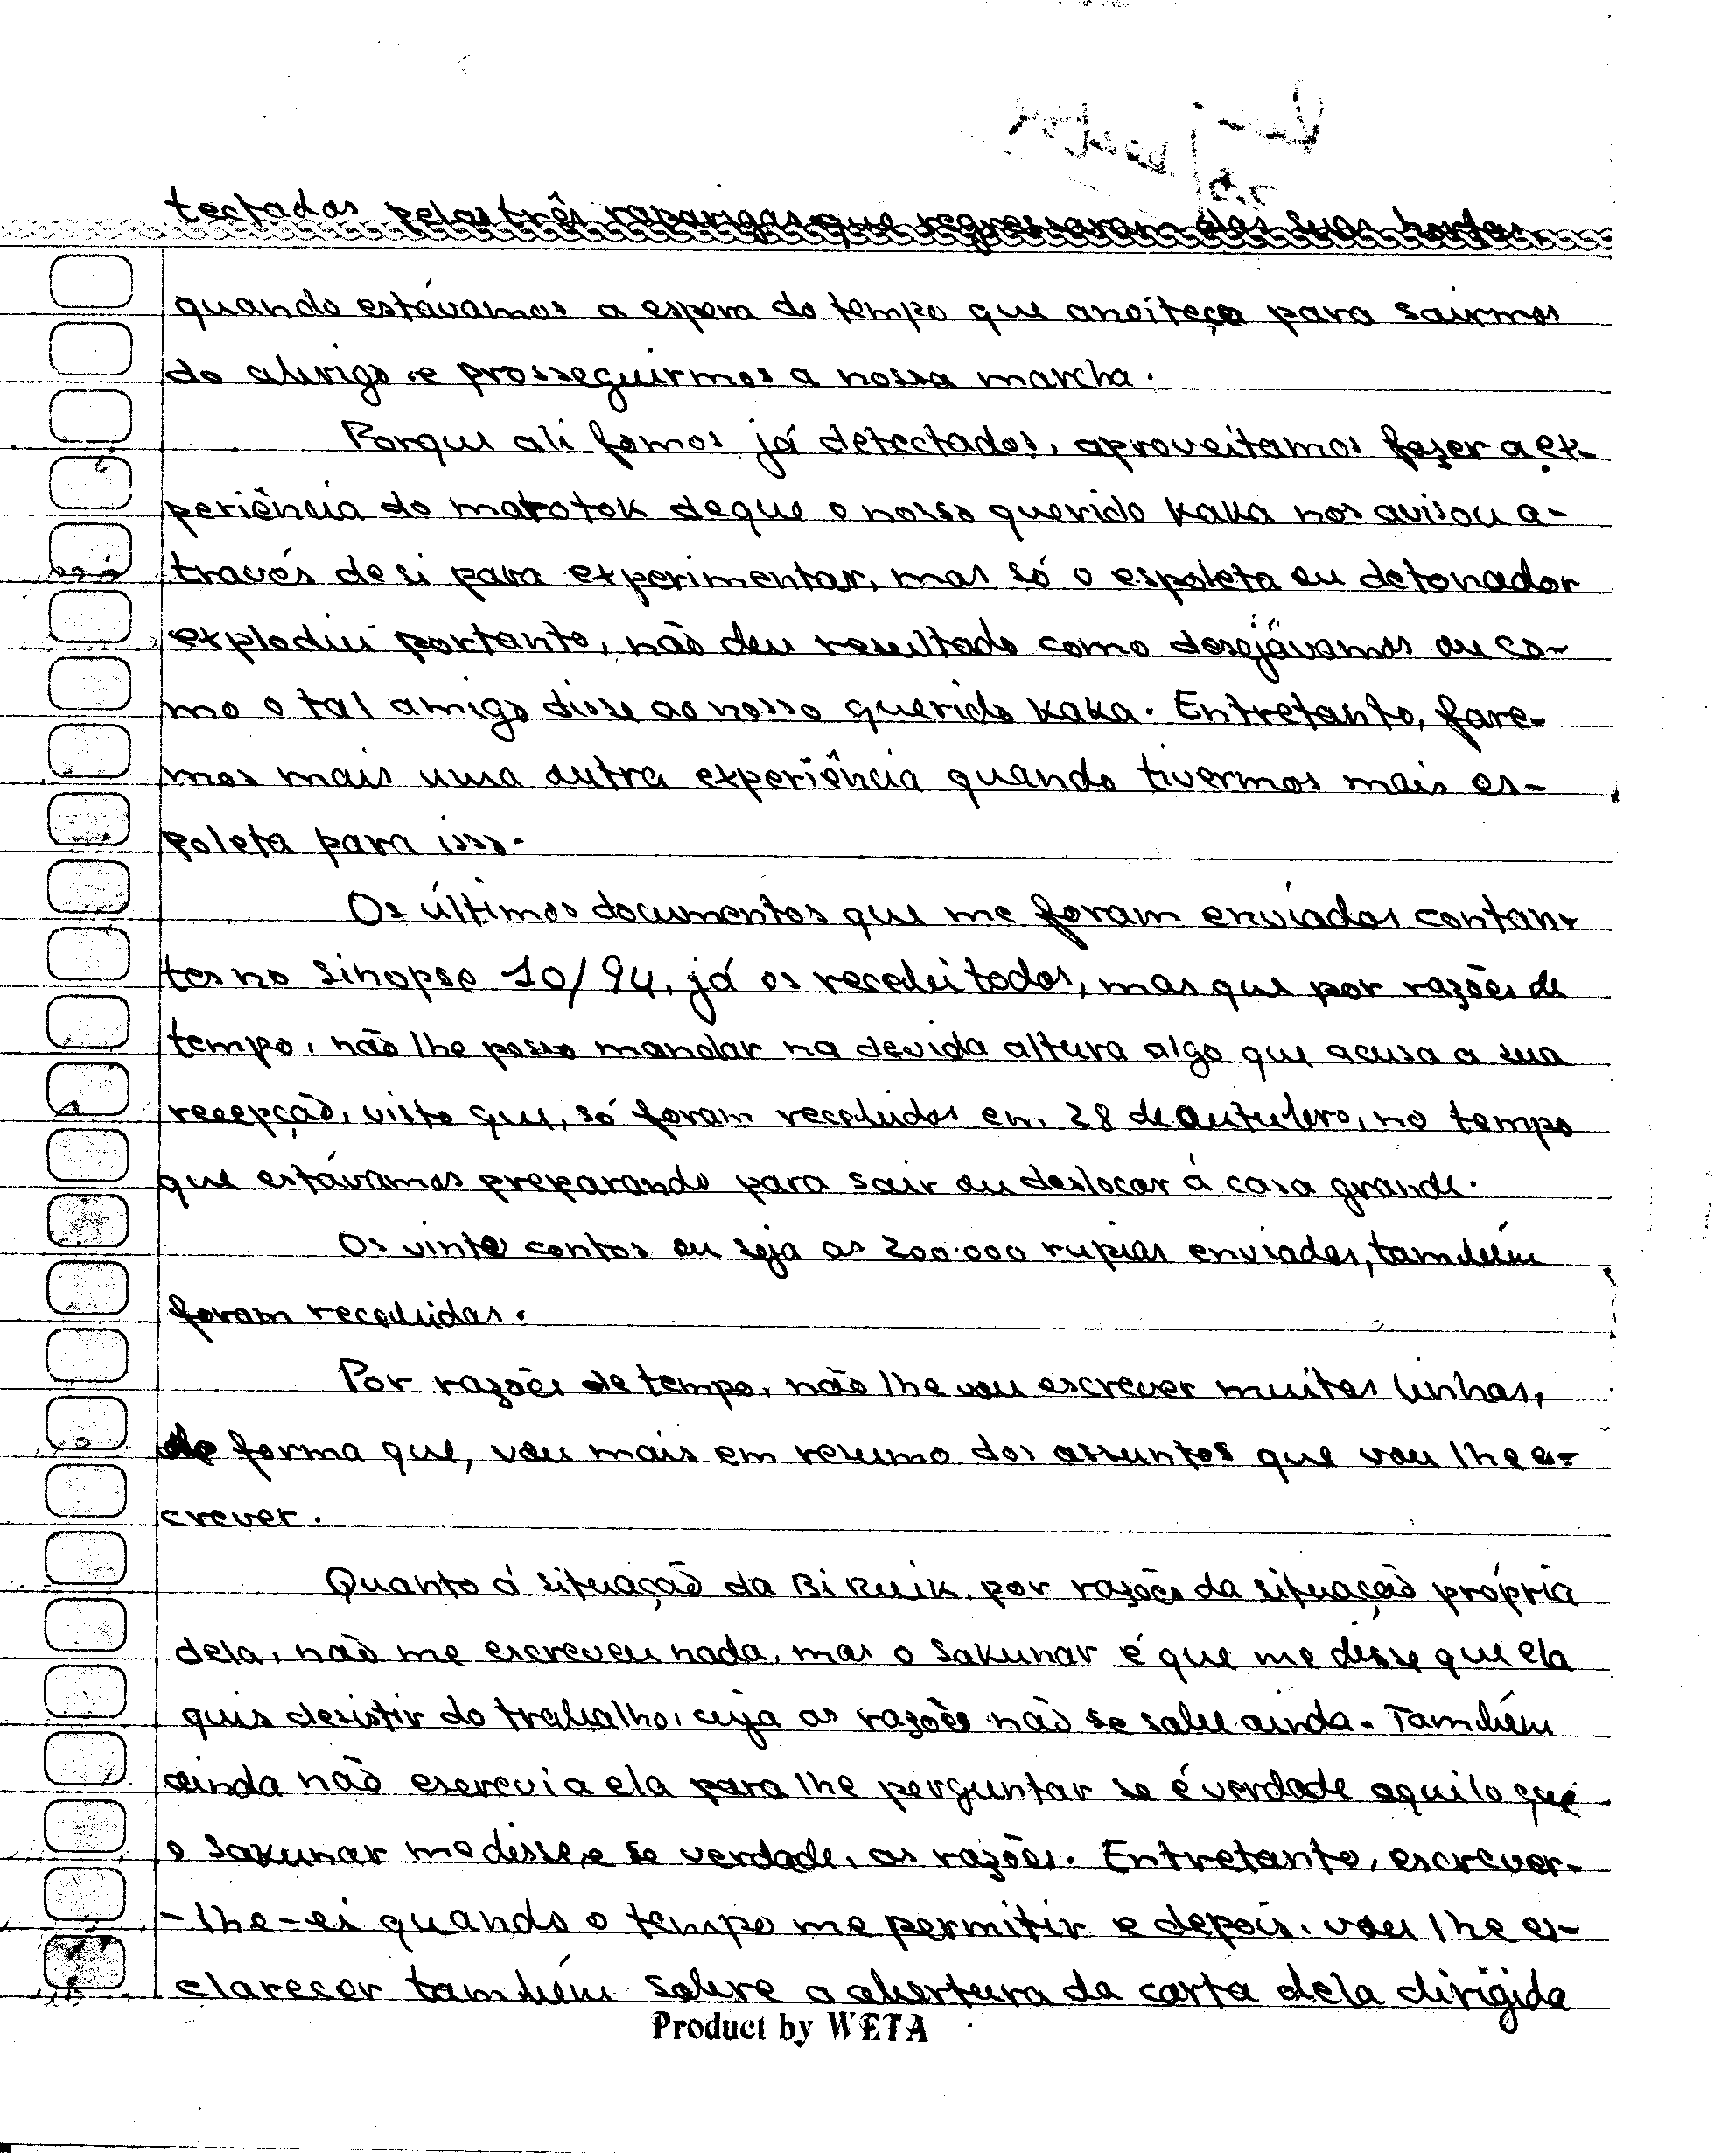 tectados pelas três raparigas que regressaram das suas hortas,
quando estávamos a espera do tempo que anoiteça para sairmos
do abrigo e prosseguirmos a nossa marcha.
Porqui ali fomos já detectados, aproveitamos fazer a ex-
periência do matotok deque o nosso querido Kaka nos avisou a-
través de si para experimentar, mas só o espoleta ou detonador
explodiu portanto, não deu resultado como desejávamos ou co-
mo o tal amigo disse ao nosso querido Kaka. Entretanto, fare-
mos mais uma outra experiência quando tivermos mais es-
poleta para isso.
Os últimos documentos que me foram enviados contan-
tes no sinopse 10/94, já os recebi todos, mas que por razões de
tempo, não lhe posso mandar na devida altura algo que acusa a sua
recepção, visto que, só foram recebidos em 28 de outubro, no tempo
que estávamos preparando para sair ou deslocar à casa grande.
Os vinte contos ou seja as 200.000 rupias enviadas, também
foram recebidas.
Por razões de tempo, não lhe vou escrever muitas linhas,
de forma que, vou mais em resumo dos assuntos que vou lhe es-
crever.
Quanto á situação da Bi Ruik, por razões da situação própria
dela, não me escreveu nada, mas o Sakunar é que me disse que ela
quis desistir do trabalho, cuja as razões não se sabe ainda. Também
ainda não escrevi a ela para lhe perguntar se é verdade aquilo que
o Sakunar me disse, e se verdade, as razões. Entretanto, escrever-
-lhe-ei quando o tempo me permitir e depois, vou lhe es-
clarecer também sobre a abertura da carta dela dirigida
Product by WETA